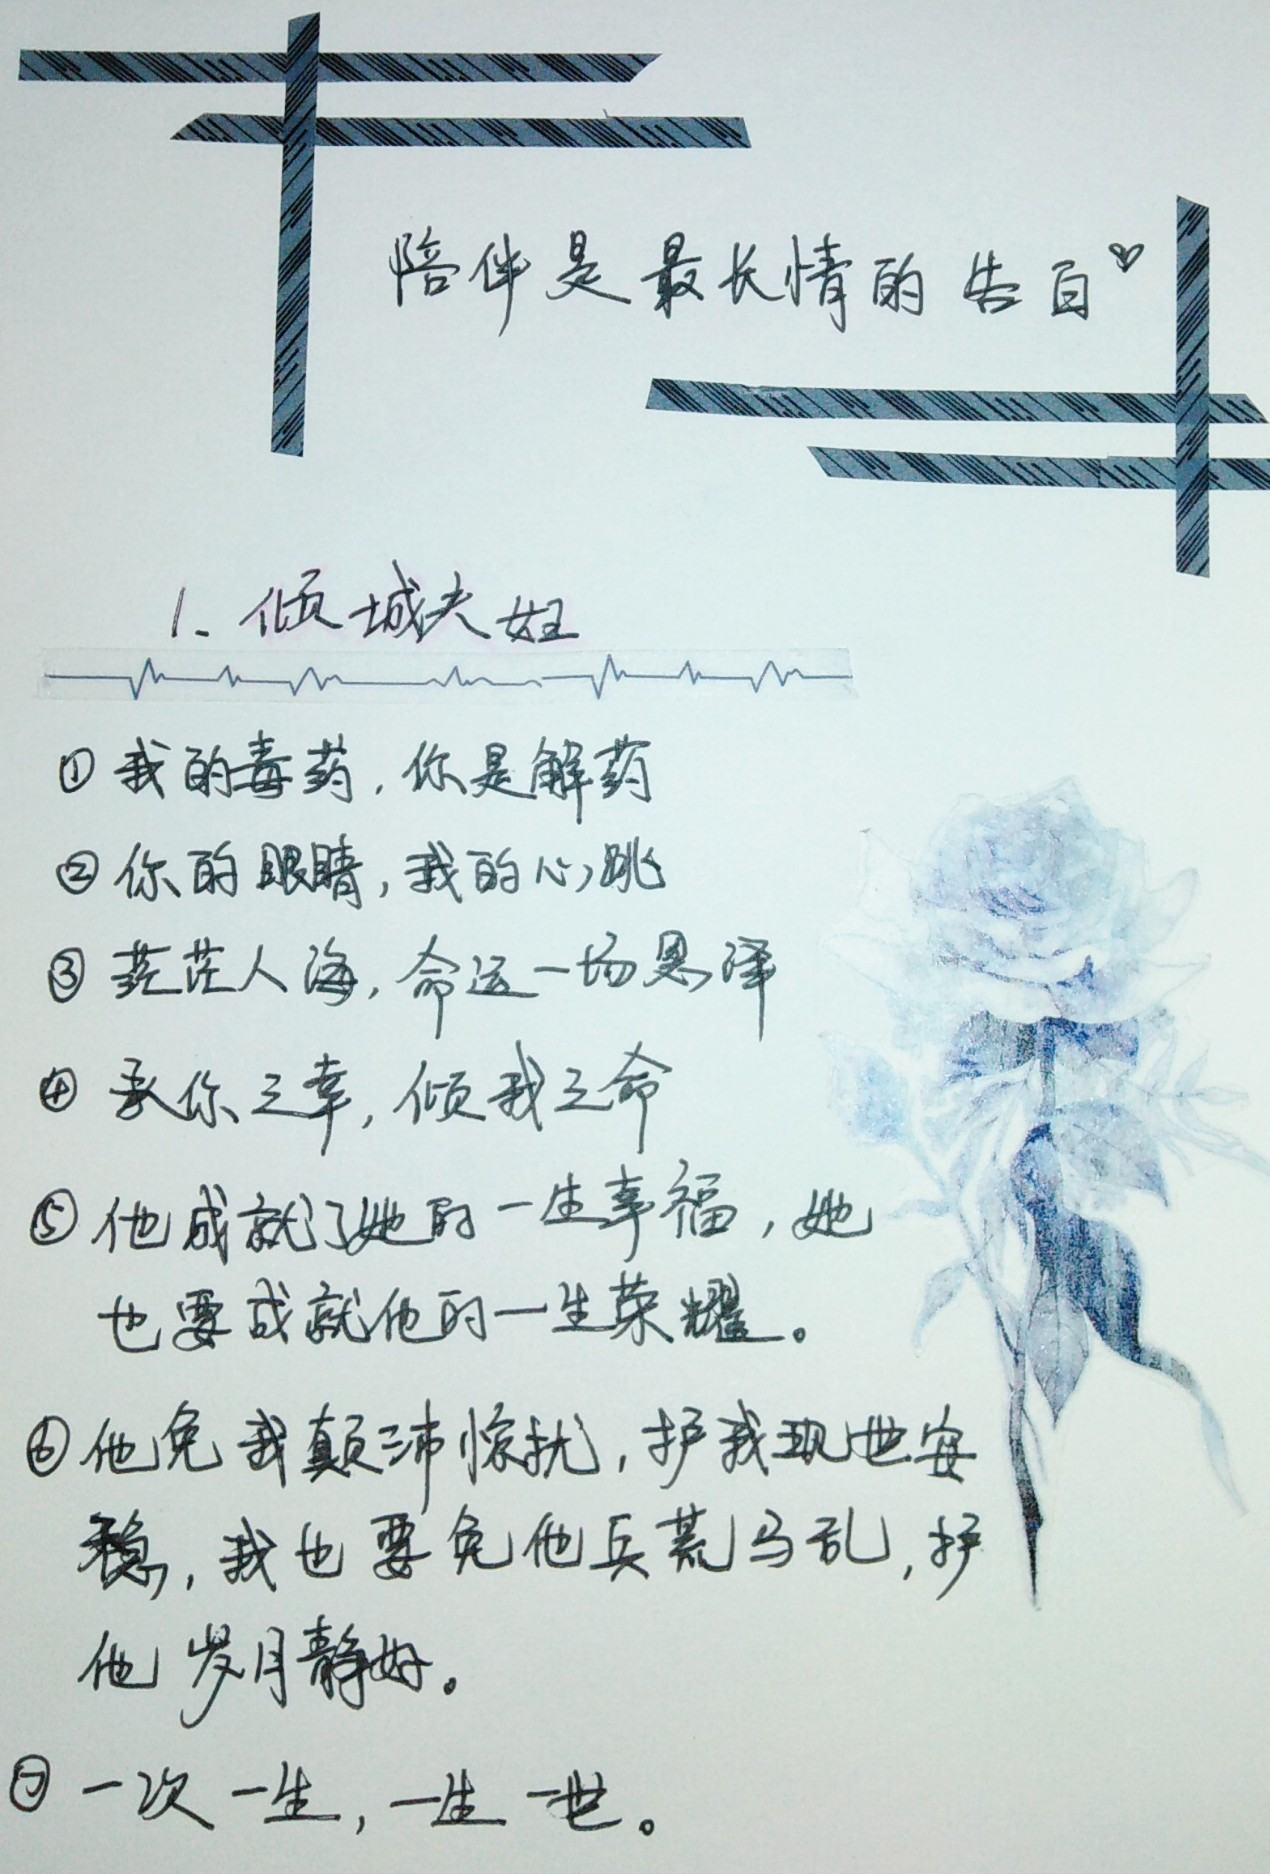 陪伴是最长情的告白♡
1、倾城夫妇
① 我的毒药，你是解药
② 你的眼睛，我的心跳
③ 茫茫人海，命运一场恩泽
④ 承你之幸，倾我之命
⑤ 他成就了她的一生幸福，她
也要成就他的一生荣耀。
⑥ 他免我颠沛惊扰，护我现世安
稳，我也要免他兵荒马乱，护
他岁月静好。
⑦ 一次一生，一生一世。